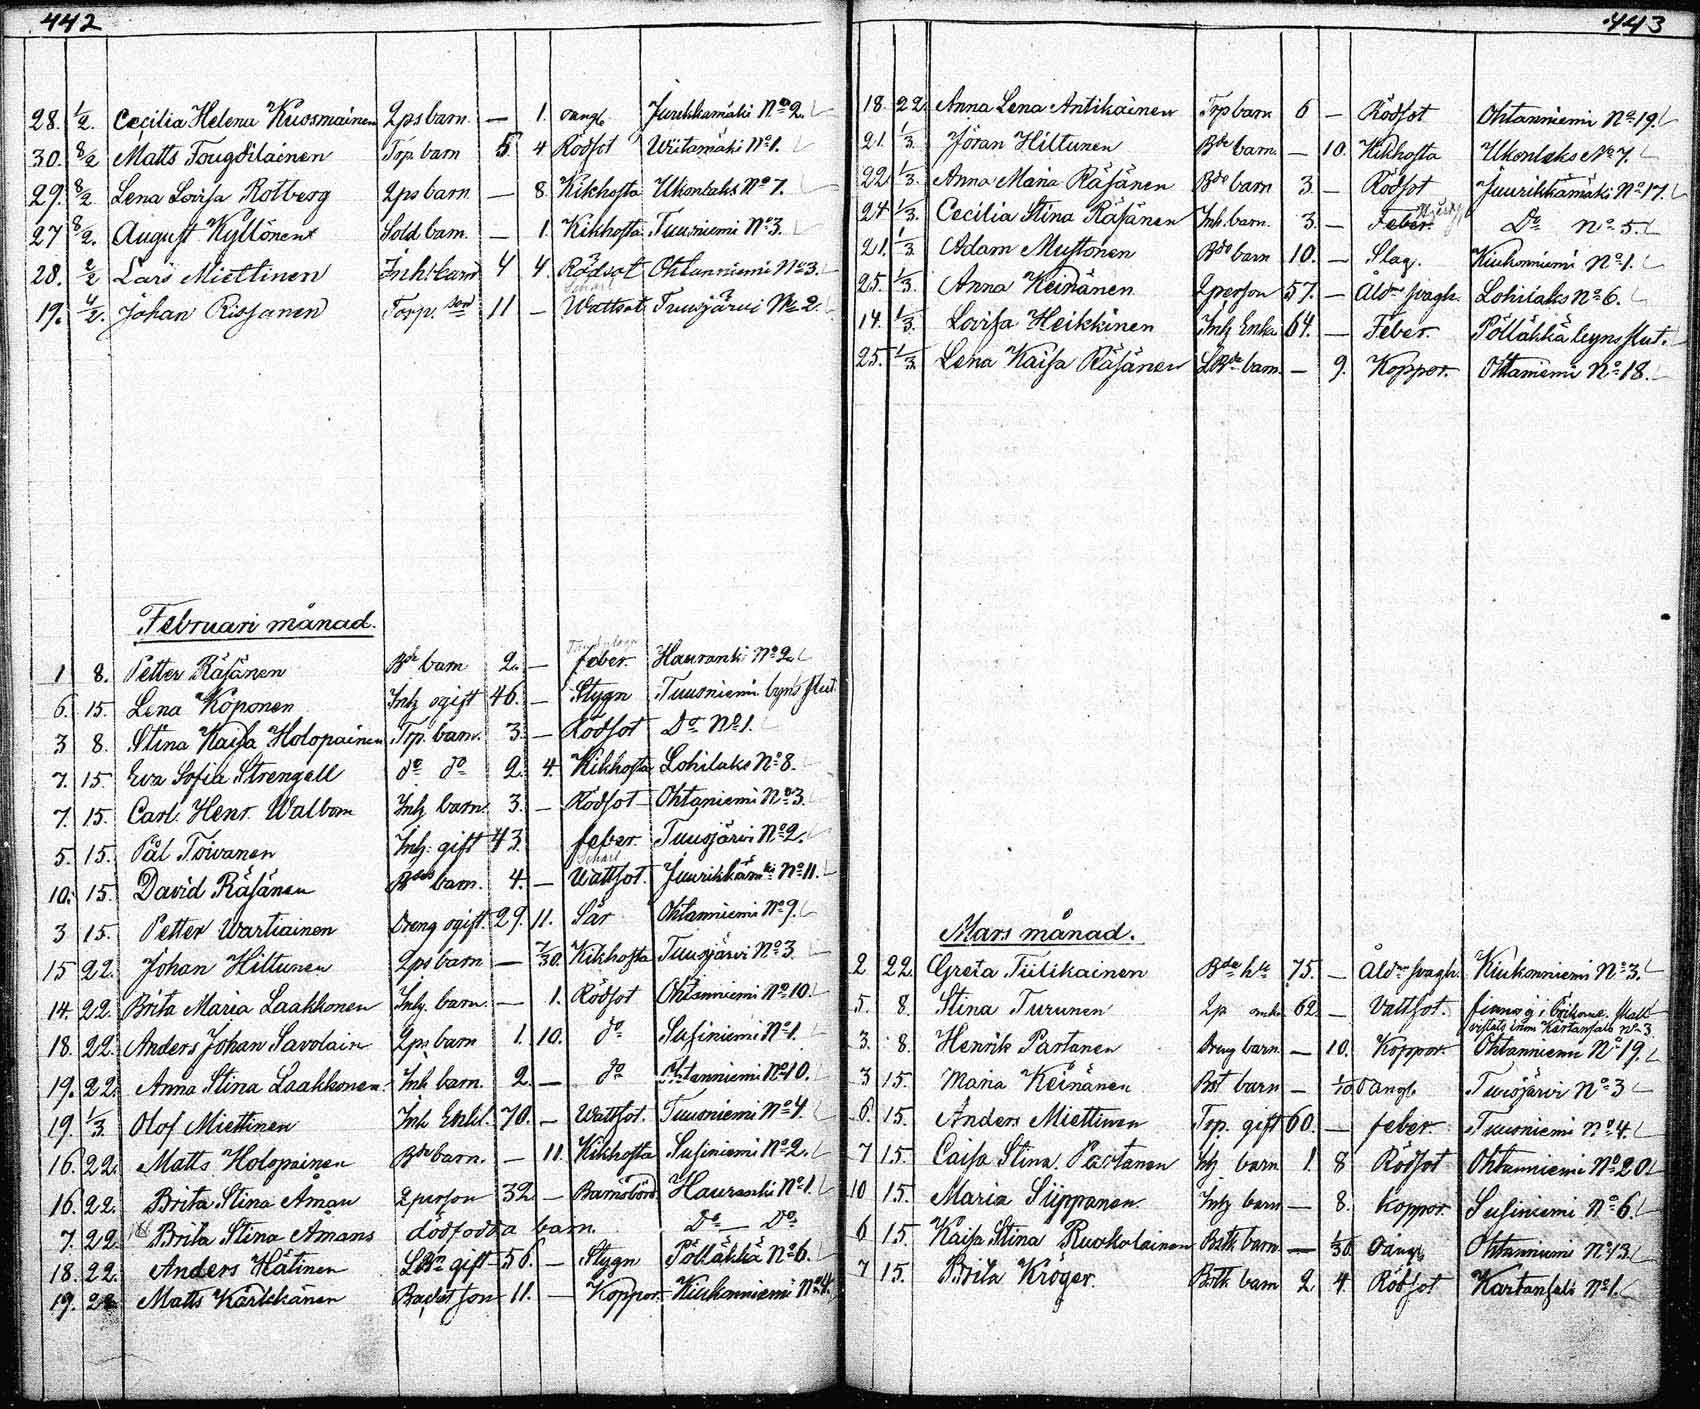 442
28. 1/2. Cecilia Helena Kuosmainen Lps barn. — 1. oangf Juurikkamäki No 2.
30. 8/2 Matts Tougdilainen Torp. barn 5 4 Rödsot Wiitamäki No 1.
29. 8/2 Lena Lovisa Rotberg Lps barn — 8. Kikhosta Ukonlaks No 7.
27 8/2. August Kyllönen Sold. barn. — 1. Kikhosta Tuusniemi No 3.
28. 2/2 Lars Miettinen Inh. barn 4 4. Rödsot Ohtanniemi No 3.
Scharl
19. 4/2. Johan Rissanen Torp. son 11 — Wattsot Tuusjärvi No 2.
Februari månad.
1 8. Petter Räsänen Bde barn 2. — feber. Hauranki No 2.
6. 15. Lena Koponen Inh ogift 46. — Stygn Tuusniemi byns flut.
3 8. Stina Kaisa Holopainen Trp. barn. 3. — Rödsot Do No 1.
7. 15. Eva Sofia Strengell do do 2. 4. Kikhosta Lohilaks No 8.
7. 15. Carl Henr. Walbom Inh barn. 3. — Rödsot Ohtaniemi No 3.
5. 15. Pål Toivanen Inh. gift 43. feber. Tuusjärvi No 2.
Scharl
10. 15. David Räsänen Bdes barn. 4. — Wattsot. Juurikkämki No 11.
3 15. Petter Wartiainen Dreng ogift. 29. 11. Sår Ohtanniemi No 9.
15 22. Johan Hiltunen Lps barn — 7/30. Kikhosta Tuusjärvi No 3.
14. 22. Brita Maria Laakkonen Inh. barn. — 1. Rödsot Ohtanniemi No 10.
18. 22. Anders Johan Savolain Lps barn 1. 10. do Susiniemi No 1.
19. 22. Anna Stina Laakkonen Inh. barn. 2. — do Ohtanniemi No 10.
19. 1/3. Olof Miettinen Inh Enkl. 70. — Wattsot. Tuusniemi No 4.
16. 22. Matts Holopainen Bde barn. — 11. Kikhosta Susiniemi No 2.
16. 22. Brita Stina Åman Lperson 32 — Barnsbörd Hauranki No 1.
7. 22. Brita Stina Åmans dödfödda barn. Do — Do
18. 22. Anders Hätinen gift 56. — Stygn Pölläkkä No 6.
19. 22 Matts Kärkkänen son 11. — Koppor. Kiukonniemi No 4.
443
18. 22. Anna Lena Antikainen Trp barn 6 — Rödsot Ohtanniemi No 19.
21. 1/3. Jöran Hiltunen Bde barn. — 10. Kikhosta Ukonlaks No 7.
22 1/3. Anna Maria Räsänen Bde barn 3 — Rödsot Juurikkämäki No 17.
24 1/3. Cecilia Stina Räsänen Inh. barn. 3. — Feber. Do No 5.
21. 1/3. Adam Mustonen Bde barn 10. — Slag. Kiukonniemi No 1.
25. 1/3. Anna Keinänen Lperson 57. — Åldr. svagh. Lohilaks No 6.
14. 1/3. Lovisa Heikkinen Inh Enka 64. — Feber. Pölläkkä byns flut.
25. 1/3. Lena Kaisa Räsänen barn. — 9. Koppor. Ohtaniemi No 18.
Mars månad.
2 22. Greta Tiilikainen Bde 75. — Åldr svagh. Kiukonniemi No 3.
5. 8. Stina Turunen Lp enk 62. — Vattsot.
3. 8. Henrik Partanen Dreng barn. — 10. Koppor. Ohtanniemi No 19.
3 15. Maria Keinänen Bst barn — 1/20 Oangf. Tuusjärvi No 3
6. 15. Anders Miettinen Torp. gift 60. — feber. Tuusniemi No 4.
7 15. Caisa Stina Partanen Inh barn 1. 8 Rödsot Ohtanniemi No 20
10 15. Maria Siipponen. Inh barn — 8. Koppor. Susiniemi No 6.
6 15. Kaisa Stina Ruokolainen Bstk barn. — 1/30. Oangf Ohtanniemi No 13.
7 15. Brita Kröger. Bstk. barn 2. 4. Rödsot Kartansalo No 1.